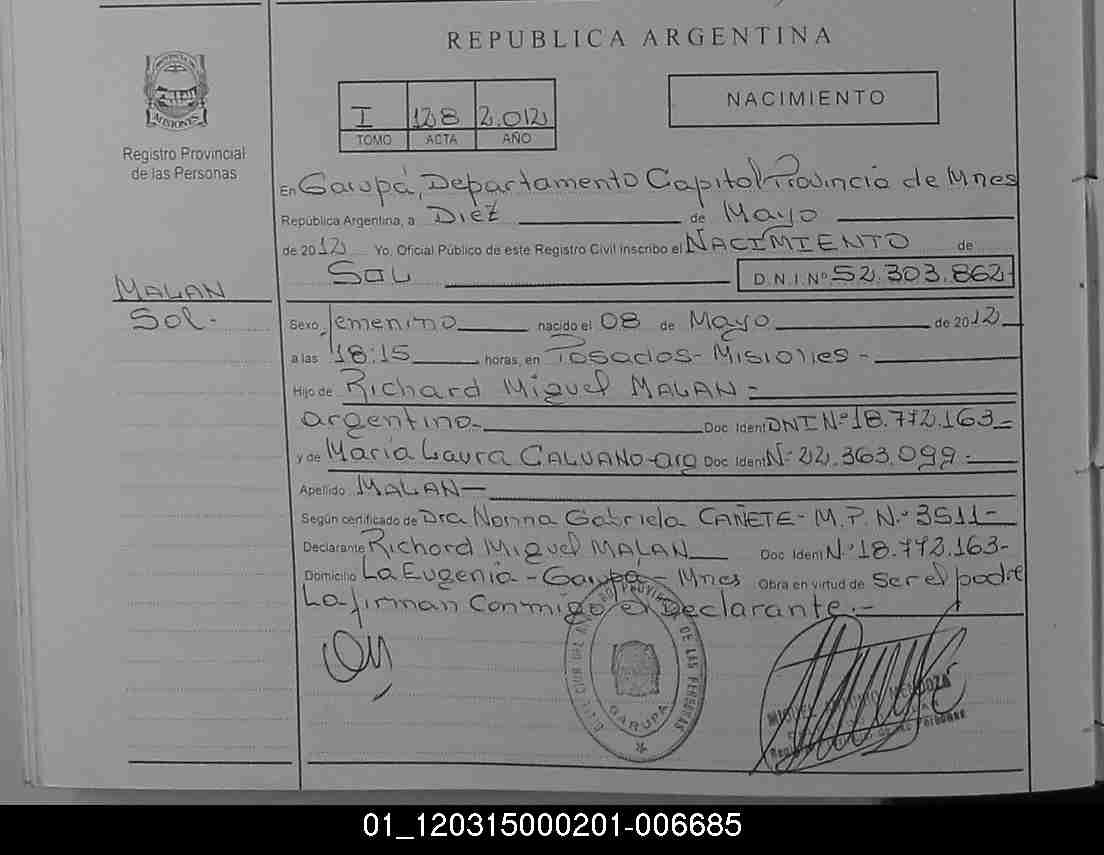 REPUBLICA ARGENTINA
MISIONES
Registro Provincial
de las Personas
I 128 2.012
TOMO ACTA AÑO
NACIMIENTO
En Garupá, Departamento Capital Provincia de Mnes
República Argentina, a Diez de Mayo
de 2012 Yo, Oficial Público de este Registro Civil inscribo el NACIMIENTO de
SOL D.N.I. Nº 52.303.862
MALAN
Sol.
Sexo, femenino nacido el 08 de Mayo de 2012
a las 18:15 horas, en Posadas - Misiones -
Hijo de Richard Miguel MALAN -
argentino - Doc Ident DNI Nº 18.772.163 -
y de María Laura GALVANO - arg Doc Ident Nº 22.363.099 -
Apellido MALAN -
Según certificado de Dra Norma Gabriela CAÑETE - M.P. N.º 3511 -
Declarante Richard Miguel MALAN Doc Ident Nº 18.772.163 -
Domicilio La Eugenia - Garupá - Mnes Obra en virtud de Ser el padre
La firman Conmigo el Declarante. -
PROVINCIAL DE LAS PERSONAS
GARUPA
MENDOZA
01_120315000201-006685